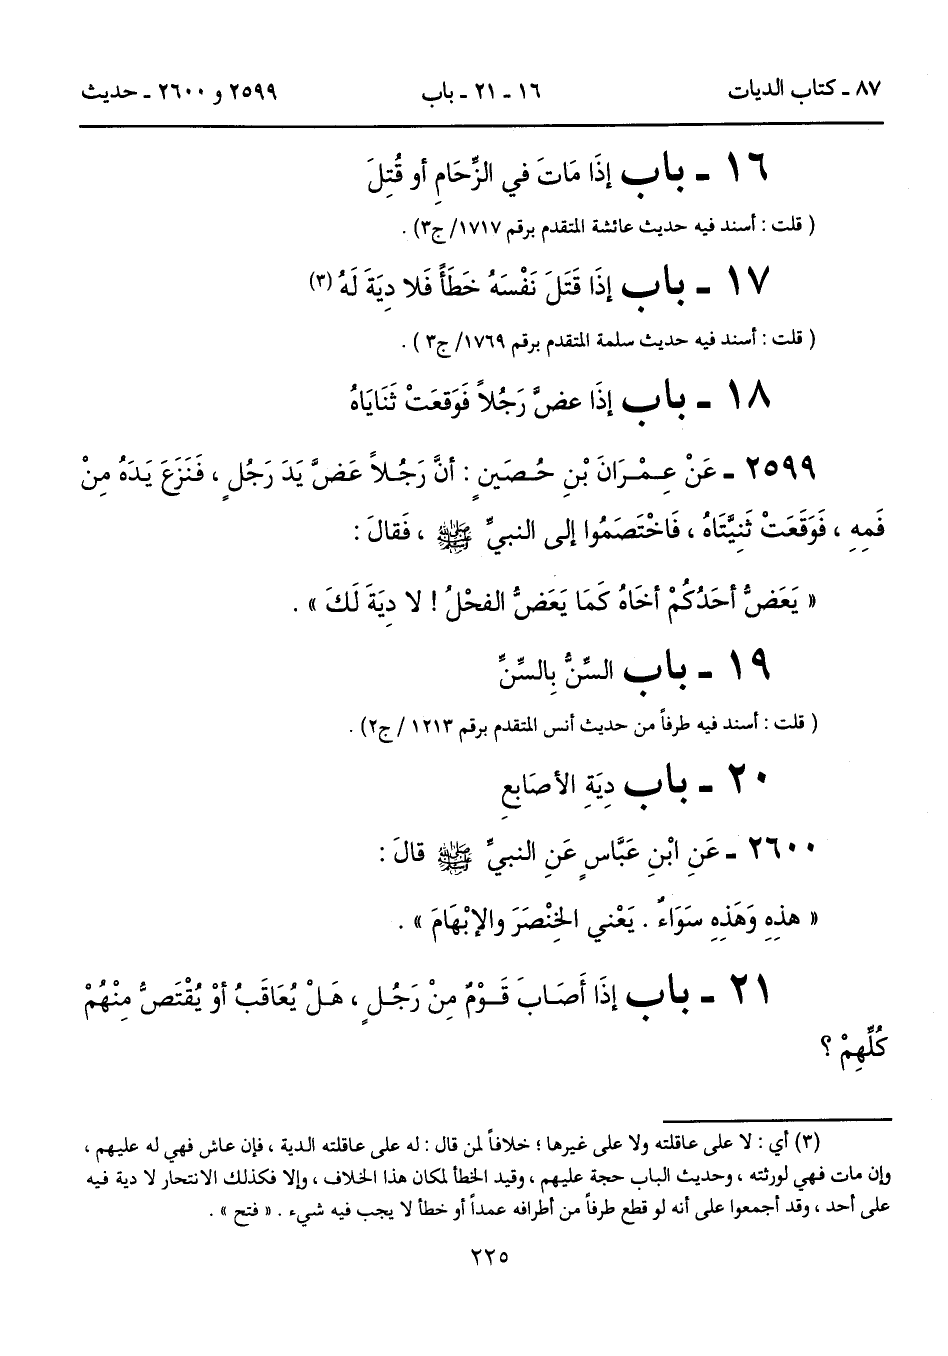 ٨٧ ـ كتاب الديات ١٦ ـ ٢١ ـ باب ٢٥٩٩ و ٢٦٠٠ ـ حديث
١٦ ـ باب إذَا مَاتَ في الزِّحَامِ أو قُتِلَ
( قلت : أسند فيه حديث عائشة المتقدم برقم ١٧١٧/ ج٣) .
١٧ ـ باب إذَا قَتَلَ نَفْسَهُ خَطَأً فَلا دِيَةَ لَهُ (٣)
( قلت : أسند فيه حديث سلمة المتقدم برقم ١٧٦٩/ ج٣ ) .
١٨ ـ باب إذَا عضَّ رَجُلاً فَوَقعَتْ ثَنَايَاهُ
٢٥٩٩ ـ عَنْ عِمْرَانَ بْنِ حُصَينٍ : أنَّ رَجُلاً عَضَّ يَدَ رَجُلٍ ، فَنَزَعَ يَدَهُ مِنْ
فَمِهِ ، فَوَقَعَتْ ثَنِيَّتَاهُ ، فَاخْتَصَمُوا إلى النبيِّ ﷺ ، فَقالَ :
« يَعَضُّ أحَدُكُمْ أخَاهُ كَمَا يَعَضُّ الفحْلُ ! لا دِيَةَ لَكَ » .
١٩ ـ باب السِّنُّ بِالسِّنِّ
( قلت : أسند فيه طرفاً من حديث أنس المتقدم برقم ١٢١٣ / ج٢) .
٢٠ ـ باب دِيَةِ الأصَابعِ
٢٦٠٠ ـ عَنِ ابْنِ عَبَّاسٍ عَنِ النبيِّ ﷺ قالَ :
« هذِهِ وَهَذِهِ سَوَاءٌ . يَعْني الخِنْصَرَ والإبْهَامَ » .
٢١ ـ باب إذَا أَصَابَ قَوْمٌ مِنْ رَجُلٍ ، هَلْ يُعَاقَبُ أوْ يُقْتَصُّ مِنْهُمْ
كُلِّهِمْ ؟
(٣) أي : لا على عاقلته ولا على غيرها ؛ خلافاً لمن قال : له على عاقلته الدية ، فإن عاش فهي له عليهم ،
وإن مات فهي لورثته ، وحديث الباب حجة عليهم ، وقيد الخطأ لمكان هذا الخلاف ، وإلا فكذلك الانتحار لا دية فيه
على أحد ، وقد أجمعوا على أنه لو قطع طرفاً من أطرافه عمداً أو خطأ لا يجب فيه شيء . « فتح » .
٢٢٥